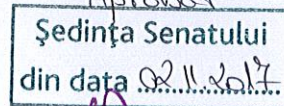 Ședința Senatului
din data 02.11.2017